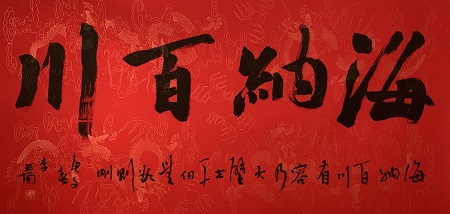 海納百川
海納百川有容乃大壁立千仞無欲則剛